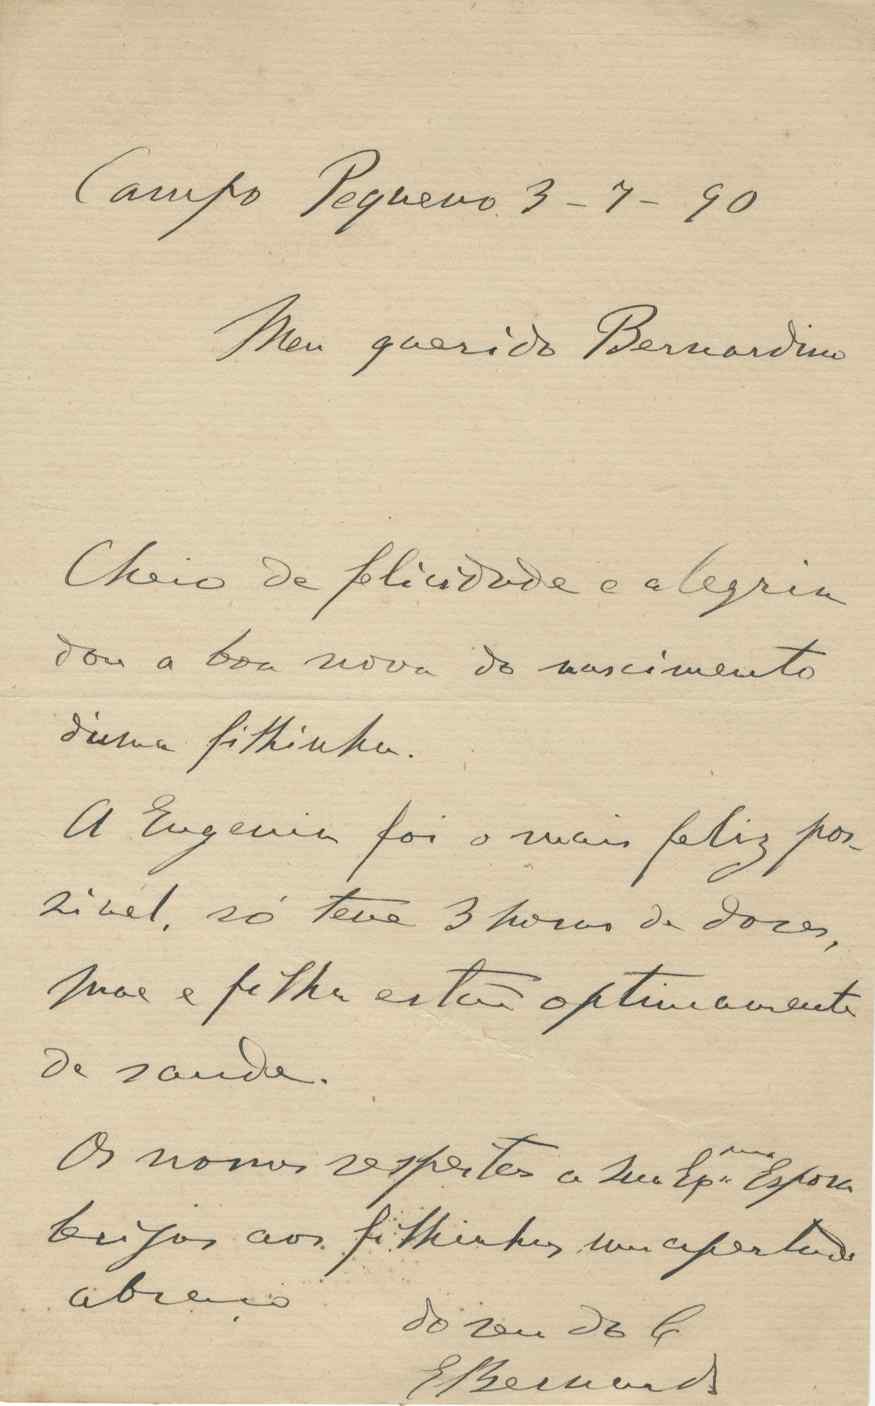 Campo Pequeno 3-7-90
Meu querido Bernardino
Cheio de felicidade e alegria
dou a boa nova do nascimento
d'uma filhinha.
A Eugenia foi o mais feliz pos-
sivel, só teve 3 horas de dores,
mae e filha estão optimamente
de saude.
Os nossos respeitos a sua Exma Esposa
beijos aos filhinhos um apertado
abraço
do seu do C
EBernard